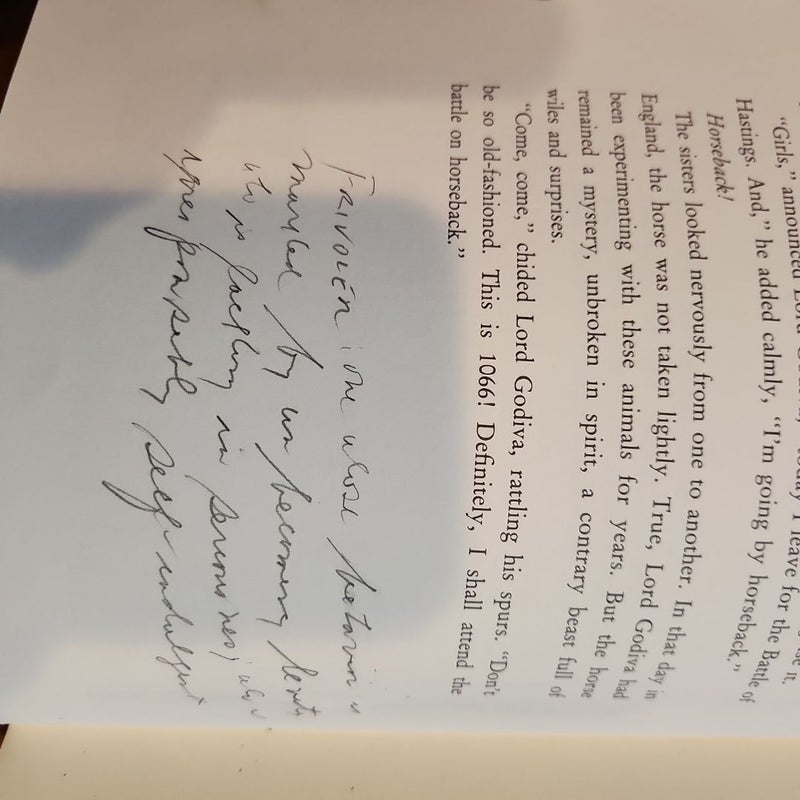 "Girls," announced Lord I leave for the Battle of
Hastings. And," he added calmly, "I'm going by horseback."
Horseback!
The sisters looked nervously from one to another. In that day in
England, the horse was not taken lightly. True, Lord Godiva had
been experimenting with these animals for years. But the horse
remained a mystery, unbroken in spirit, a contrary beast full of
wiles and surprises.
"Come, come," chided Lord Godiva, rattling his spurs. "Don't
be so old-fashioned. This is 1066! Definitely, I shall attend the
battle on horseback."
one whose
marked by unbecoming
who is lacking in seriousness
self-indulgent